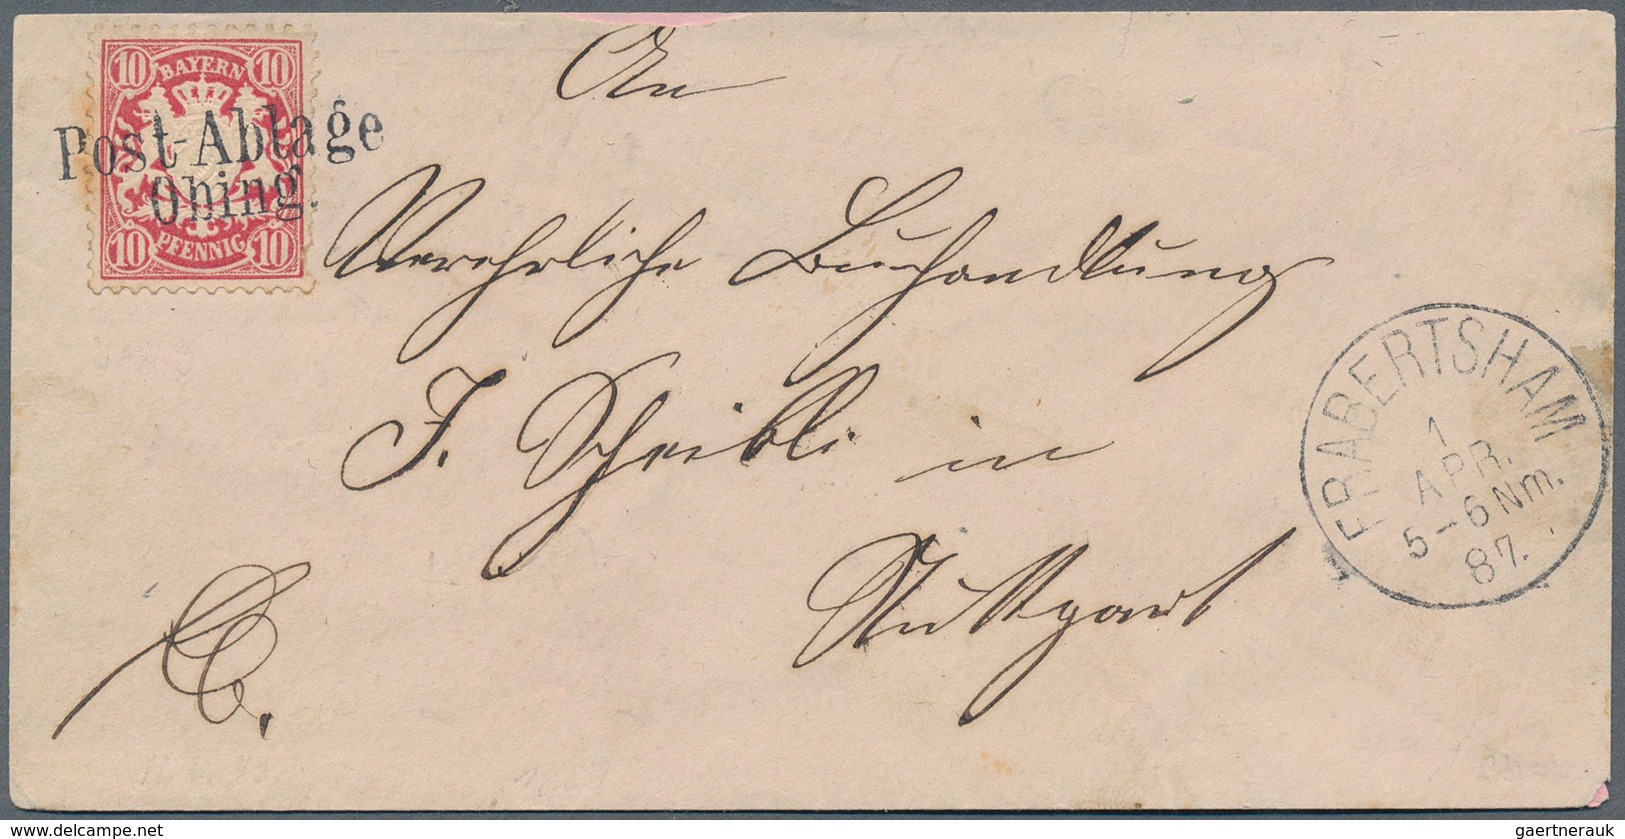 10 BAYERN 10
Post-Ablage
Obing.
10 PFENNIG 10
An
Verehrliche Buchhandlung
J. Scheible in
Stuttgart
FRABERTSHAM
1
APR.
5-6 Nm.
87.
www.delcampe.net
gaertnerauk